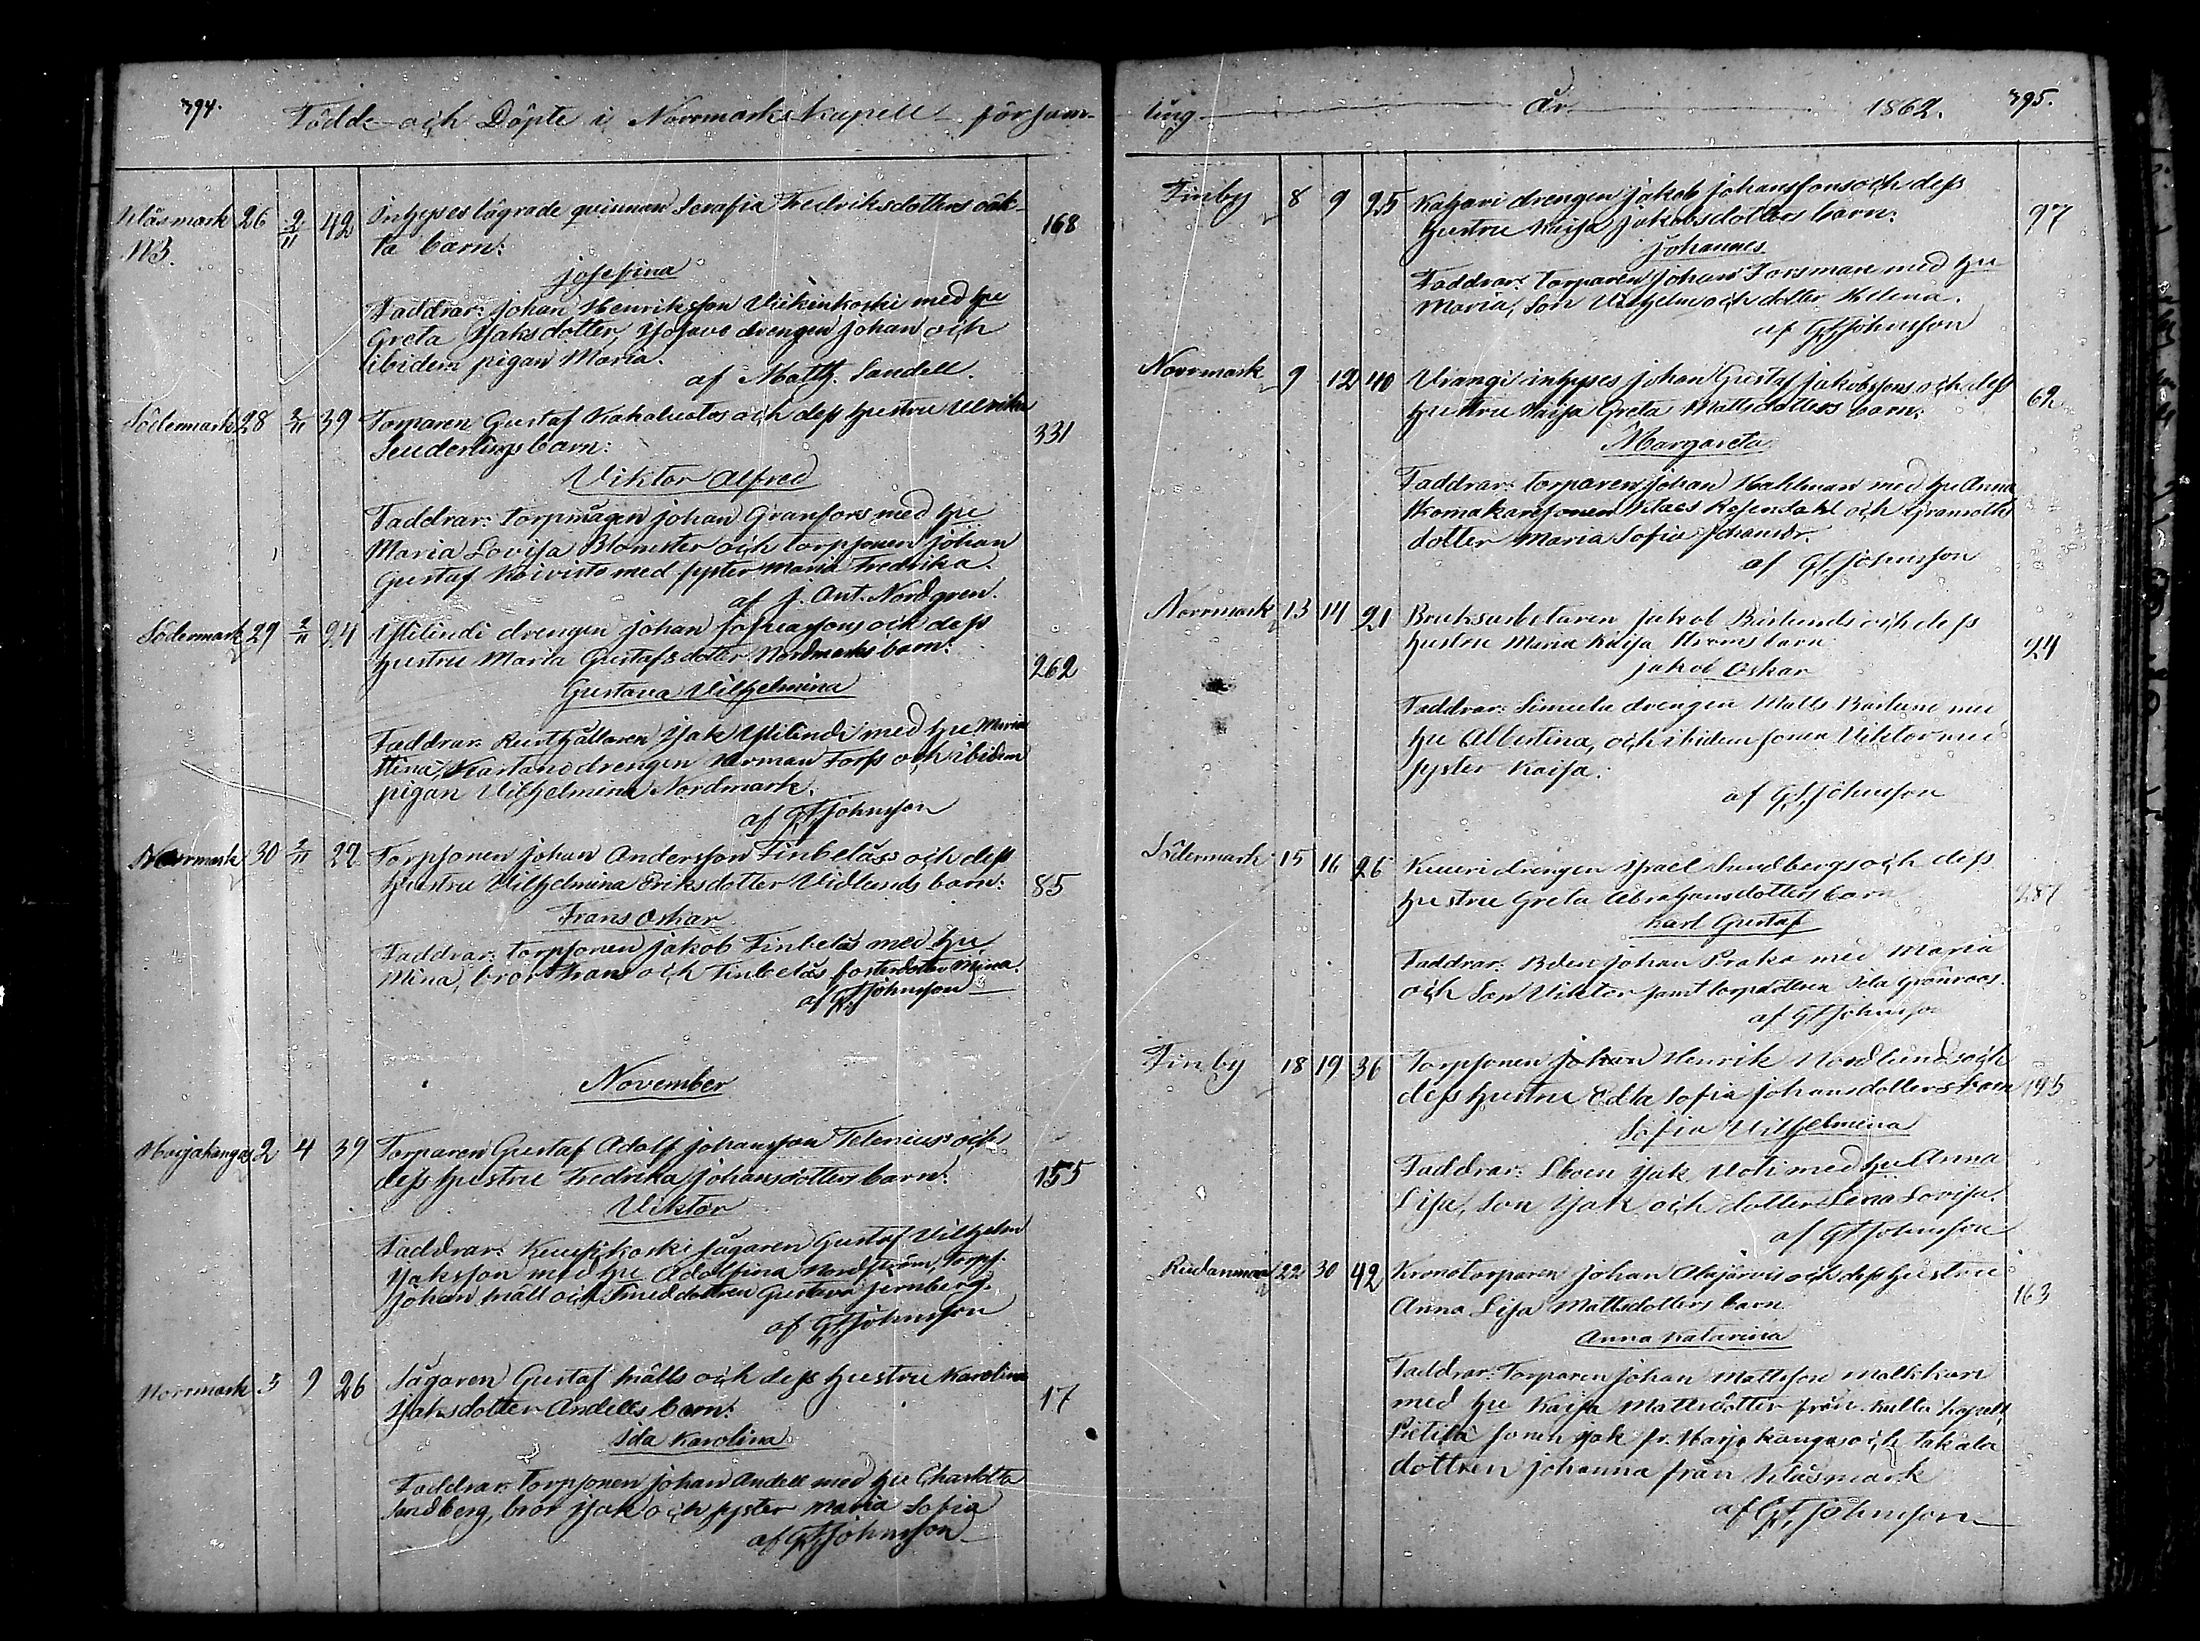 394.
Födde och Döpte i Norrmarks kapell försam-
Klåsmark 26 2/11 42 Inhyses lägrade qvinnan Serafia Fredriksdotters oäk-
N3.
ta barn: 168
Josefina
Faddrar: Johan Henriksson med hu
Greta Isaksdotter, drengen Johan och
ibidem pigan Maria.
af Matth. Sandell.
Södermark 28 2/11 39 Torparen Gustaf och dess hustru Ulrika
barn: 331
Viktor Alfred
Faddrar: torpmågen Johan Granfors med hu
Maria Lovisa Blomster och torpsonen Johan
Gustaf Koivisto med syster Maria Fredrika.
af J. Ant. Nordgren.
Södermark 29 2/11 24 drengen Johan och dess
hustru Maria Gustafsdotter Nordmarks barn: 262
Gustava Vilhelmina
Faddrar: Rusthållaren Isak med hu Maria
Stina, drengen Herman Forss och ibidem
pigan Vilhelmina Nordmark.
af G F Johnsson
Norrmark 30 2/11 22 Torpsonen Johan Andersson Finbeläs och dess
hustru Vilhelmina Eriksdotter Vidlunds barn: 85
Frans Oskar
Faddrar: torpsonen Jakob Finbeläs med hu
Mina, bror Frans och Finbeläs fosterdotter Mina.
af G F Johnsson
November
Harjakangas 2 4 39 Torparen Gustaf Adolf Johansson Telenius och
dess hustru Fredrika Johansdotters barn: 155
Viktor
Faddrar: sågaren Gustaf Vilhelm
Isaksson med hu Adolfina Nordström, Torps.
Johan Mäll och Smeddottren Gustava Jernberg.
af G F Johnsson
Norrmark 5 9 26 Sågaren Gustaf Mälls och dess hustru Karolina
Isaksdotter Andells barn: 17
Ida Karolina
Faddrar: Torpsonen Johan Andell med hu Charlotta
Sandberg, bror Isak och syster Maria Sofia
af G F Johnsson
ling År 1862. 395.
Finby 8 9 25 drengen Jakob Johanssons och dess
hustru Kaisa Jakobsdotters barn: 97
Johannes
Faddrar: torparen Johan Forsman med hu
Maria, Son Vilhelm och dotter Helena.
af G F Johnsson
Norrmark 9 12 40 inhyses Johan Gustaf Jakobssons och dess
hustru Kaisa Greta Mattsdotters barn: 62
Margareta
Faddrar: torparen Johan Kahlman med hu Anna
Skomakaresonen Klaes Rosendahl och Granroths
dotter Maria Sofia Johansdr.
af G F Johnsson
Norrmark 13 14 21 Bruksarbetaren Jakob Bärlunds och dess
hustru Maria Kaisa Ströms barn 24
Jakob Oskar
Faddrar: drengen Matts Bärlund med
hu Albertina, och ibidem sonen Viktor med
syster Kaisa.
af G F Johnsson
Södermark 15 16 26 drengen Israel Sundbergs och dess
hustru Greta Abrahamsdotters barn 287
Karl Gustaf
Faddrar: Bden Johan Praka med Maria
och Son Viktor samt torpdottren Ida Grönroos.
af G F Johnsson
Finby 18 19 36 Torpsonen Johan Henrik Nordlunds och
dess hustru Edla Sofia Johansdotters barn 195
Sofia Vilhelmina
Faddrar: Isak Uoti med hu Anna
Lisa, Son Isak och dotter Lena Lovisa.
af G F Johnsson
22 30 42 Kronotorparen Johan Alajärvis och dess hustru
Anna Lisa Mattsdotters barn 163
Anna Katarina
Faddrar: Torparen Johan Mattsson
med hu Kaisa Mattsdotter från Kulla kapell,
sonen Isak fr. Harjakangas och
dottren Johanna från Klåsmark
af G F Johnsson